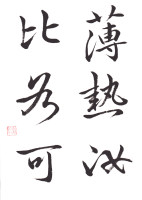 薄熱汝
比為可